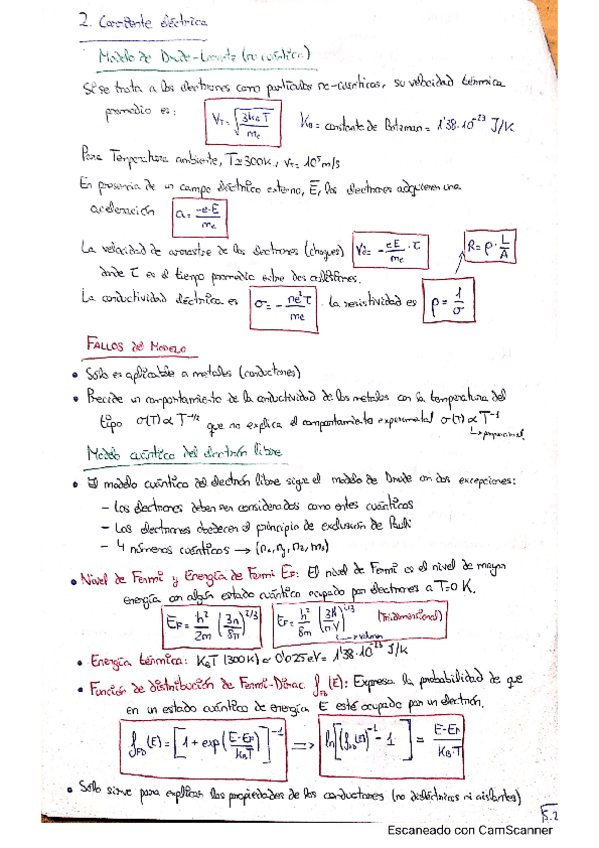 2. Corriente eléctrica
Modelo de Drude-Lorentz (no cuántico)
Si se trata a los electrones como partículas no-cuánticas, su velocidad térmica
promedio es: V_T = √(3k_BT/m_e) K_B = constante de Botzman = 1'38·10^-23 J/K
Para Temperatura ambiente, T≃300K, v_T = 10^5 m/s
En presencia de un campo eléctrico externo, E, los electrones adquieren una
aceleración a = -e·E/m_e
La velocidad de arrastre de los electrones (choques) V_d = - eE/m_e · τ R = ρ · L/A
donde τ es el tiempo promedio entre dos colisiones.
La conductividad eléctrica es σ = - ne²τ/m_e la resistividad es ρ = 1/σ
FALLOS del MODELO
• Sólo es aplicable a metales (conductores)
• Predice un comportamiento de la conductividad de los metales con la temperatura del
tipo σ(T) ∝ T^-1/2 que no explica el comportamiento experimental σ(T) ∝ T^-1
↳ proporcional
Modelo cuántico del electrón libre
• El modelo cuántico del electrón libre sigue el modelo de Drude con dos excepciones:
- Los electrones deben ser considerados como entes cuánticos
- Los electrones obedecen al principio de exclusión de Pauli
- 4 números cuánticos → (n_x, n_y, n_z, m_s)
• Nivel de Fermi y Energía de Fermi E_F: El nivel de Fermi es el nivel de mayor
energía con algún estado cuántico ocupado por electrones a T=0 K.
E_F = h²/2m (3n/8π)^2/3 E_F = h²/8m (3N/π·V)^2/3 (Tridimensional)
↳ volumen
• Energía térmica: K_BT (300K) ≃ 0'025 eV = 1'38·10^-23 J/K
• Función de distribución de Fermi-Dirac f_FD(E): Expresa la probabilidad de que
en un estado cuántico de energía E esté ocupado por un electrón.
f_FD(E) = [1 + exp(E-E_F/K_BT)]^-1 ⟹ ln[(f_FD(E))^-1 - 1] = E-E_F/K_B·T
• Sólo sirve para explicar las propiedades de los conductores (no dieléctricos ni aislantes)
5.2
Escaneado con CamScanner